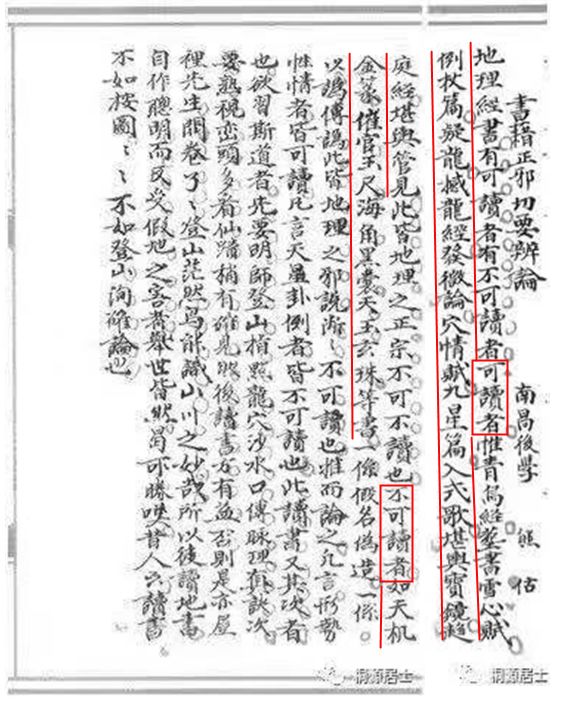 書籍正邪切要辨論
南昌後學 熊 估
地理經書有可讀者有不可讀者可讀者惟青烏經葬書雪心賦
倒杖篇疑龍撼龍經發微論穴情賦九星篇入式歌堪輿寶鏡趨
庭經堪輿管見此皆地理之正宗不可不讀也不可讀者如天机
金篆催官玉尺海角黑囊天玉玄珠等書一係假名偽造一係
以譌傳譌此皆地理之邪說斷〻不可讀也推而論之凡言形勢
性情者皆可讀凡言天星卦例者皆不可讀也此讀書又其次者
也欲習斯道者先要明師登山指點龍穴沙水口傳脉理真訣次
要熟視巒頭多看仙蹟稍有確見然後讀書方有益否則是亦屋
裡先生開卷了〻登山茫然烏能識山川之妙哉所以後讀地書
自作聰明而反受假地之害者舉世皆然曷可勝嘆昔人云讀書
不如按圖〻〻不如登山洵確論也
洞源居士
洞源居士